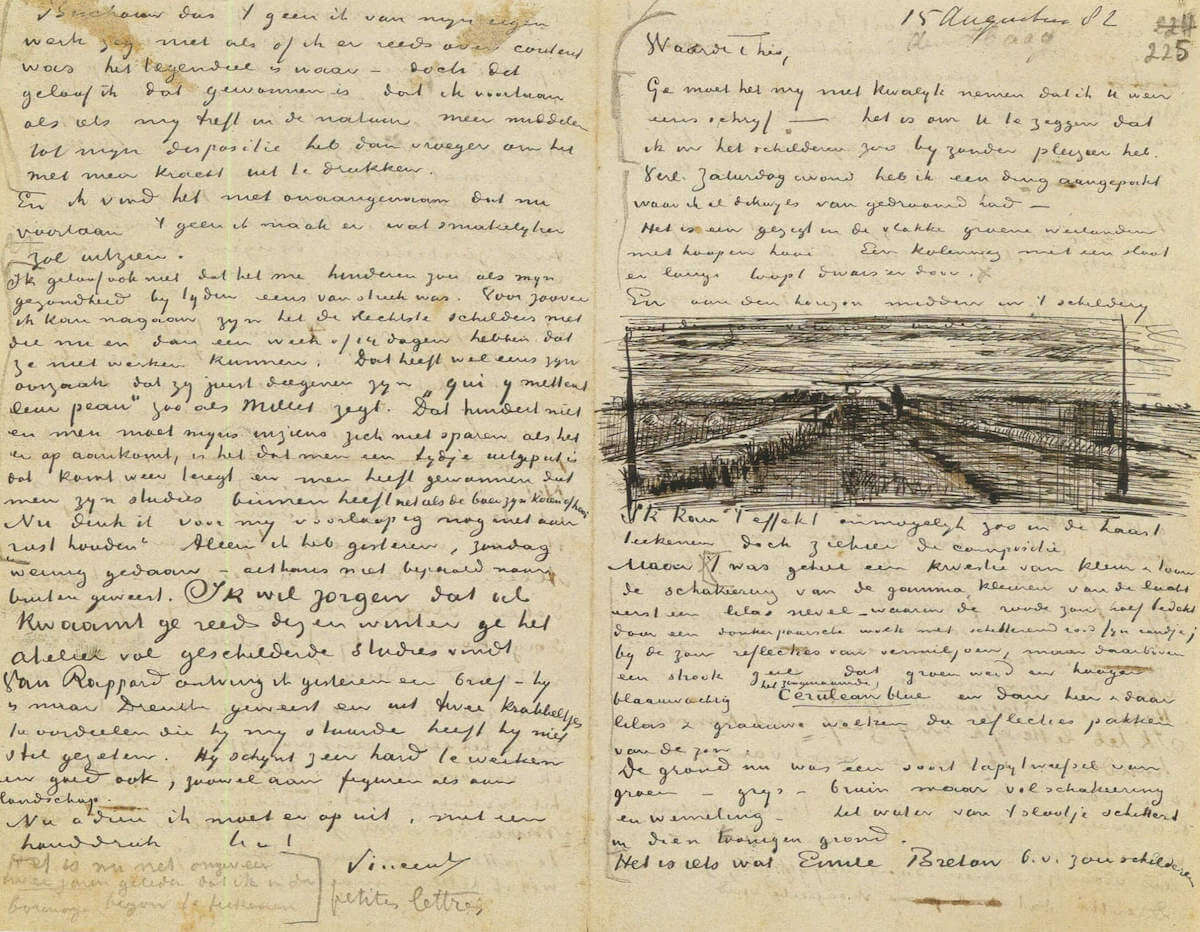 Beschouw dus 't geen ik van mijn eigen
werk zeg niet als of ik er reeds over content
was het tegendeel is waar – doch dit
geloof ik dat gewonnen is dat ik voortaan
als iets mij treft in de natuur meer middelen
tot mijn dispositie heb dan vroeger om het
met meer kracht uit te drukken.
En ik vind het niet onaangenaam dat nu
voortaan 't geen ik maak er wat smakelijker
zal uitzien.
Ik geloof ook niet dat het me hinderen zou als mijn
gezondheid bij tijden eens van streek was. Voor zoover
ik kan nagaan zijn het de slechtste schilders niet
die nu en dan een week of 14 dagen hebben dat
ze niet werken kunnen. Dat heeft wel eens zijn
oorzaak dat zij juist degenen zijn „qui y mettent
leur peau“ zoo als Millet zegt. Dat hindert niet
en men moet mijns inziens zich niet sparen als het
er op aankomt, is het dat men een tijdje uitgeput is
dat komt weer teregt en men heeft gewonnen dat
men zijn studies binnen heeft net als de boer zijn koren of hooi
Nu denk ik voor mij voorloopig nog niet aan
rust houden“ Alleen ik heb gisteren, zondag
weinig gedaan – althans niet bepaald naar
buiten geweest. Ik wil zorgen dat al
kwaamt ge reeds dezen winter ge het
atelier vol geschilderde studies vindt
Van Rappard ontving ik gisteren een brief – hij
is naar Drenthe geweest en uit twee krabbeltjes
te oordeelen die hij mij stuurde heeft hij niet
stil gezeten. Hij schijnt zeer hard te werken
en goed ook, zoowel aan figuren als aan
landschap.
Nu adieu ik moet er op uit, met een
handdruk t. à t.
Vincent
Het is nu net ongeveer
twee jaren geleden dat ik in de
borinage begon te teekenen
petites lettres
15 Augustus 82
224
225
den Haag
Waarde Theo,
Ge moet het mij niet kwalijk nemen dat ik U weer
eens schrijf — het is om U te zeggen dat
ik in het schilderen zoo bijzonder pleizier heb.
Verl. Zaturdag avond heb ik een ding aangepakt
waar ik al dikwijls van gedroomd had –
Het is een gezigt in de vlakke groene weilanden
met hoopen hooi Een kolenweg met een sloot
er langs loopt dwars er door.
En aan den horizon midden in 't schilderij
Ik kan 't effekt onmogelijk zoo in de haast
teekenen doch ziehier de compositie
Maar 't was geheel een kwestie van kleur & toon
de schakering van de gamma kleuren van de lucht
eerst een lilas nevel – waarin de roode zon half bedekt
door een donkerpaarsche wolk met schitterend rood fijn randje;
bij de zon reflecties van vermiljoen, maar daarboven
een strook geel dat groen werd en hooger
blaauwachtig het zoogenaamde Ceruleanblue en dan hier & daar
lilas & graauwe wolken die reflecties pakken
van de zon
De grond nu was een soort tapijtweefsel van
groen – grijs – bruin maar vol schakeering
en wemeling – het water van 't slootje schittert
in dien toonigen grond
Het is iets wat Emile Breton b.v. zou schilderen